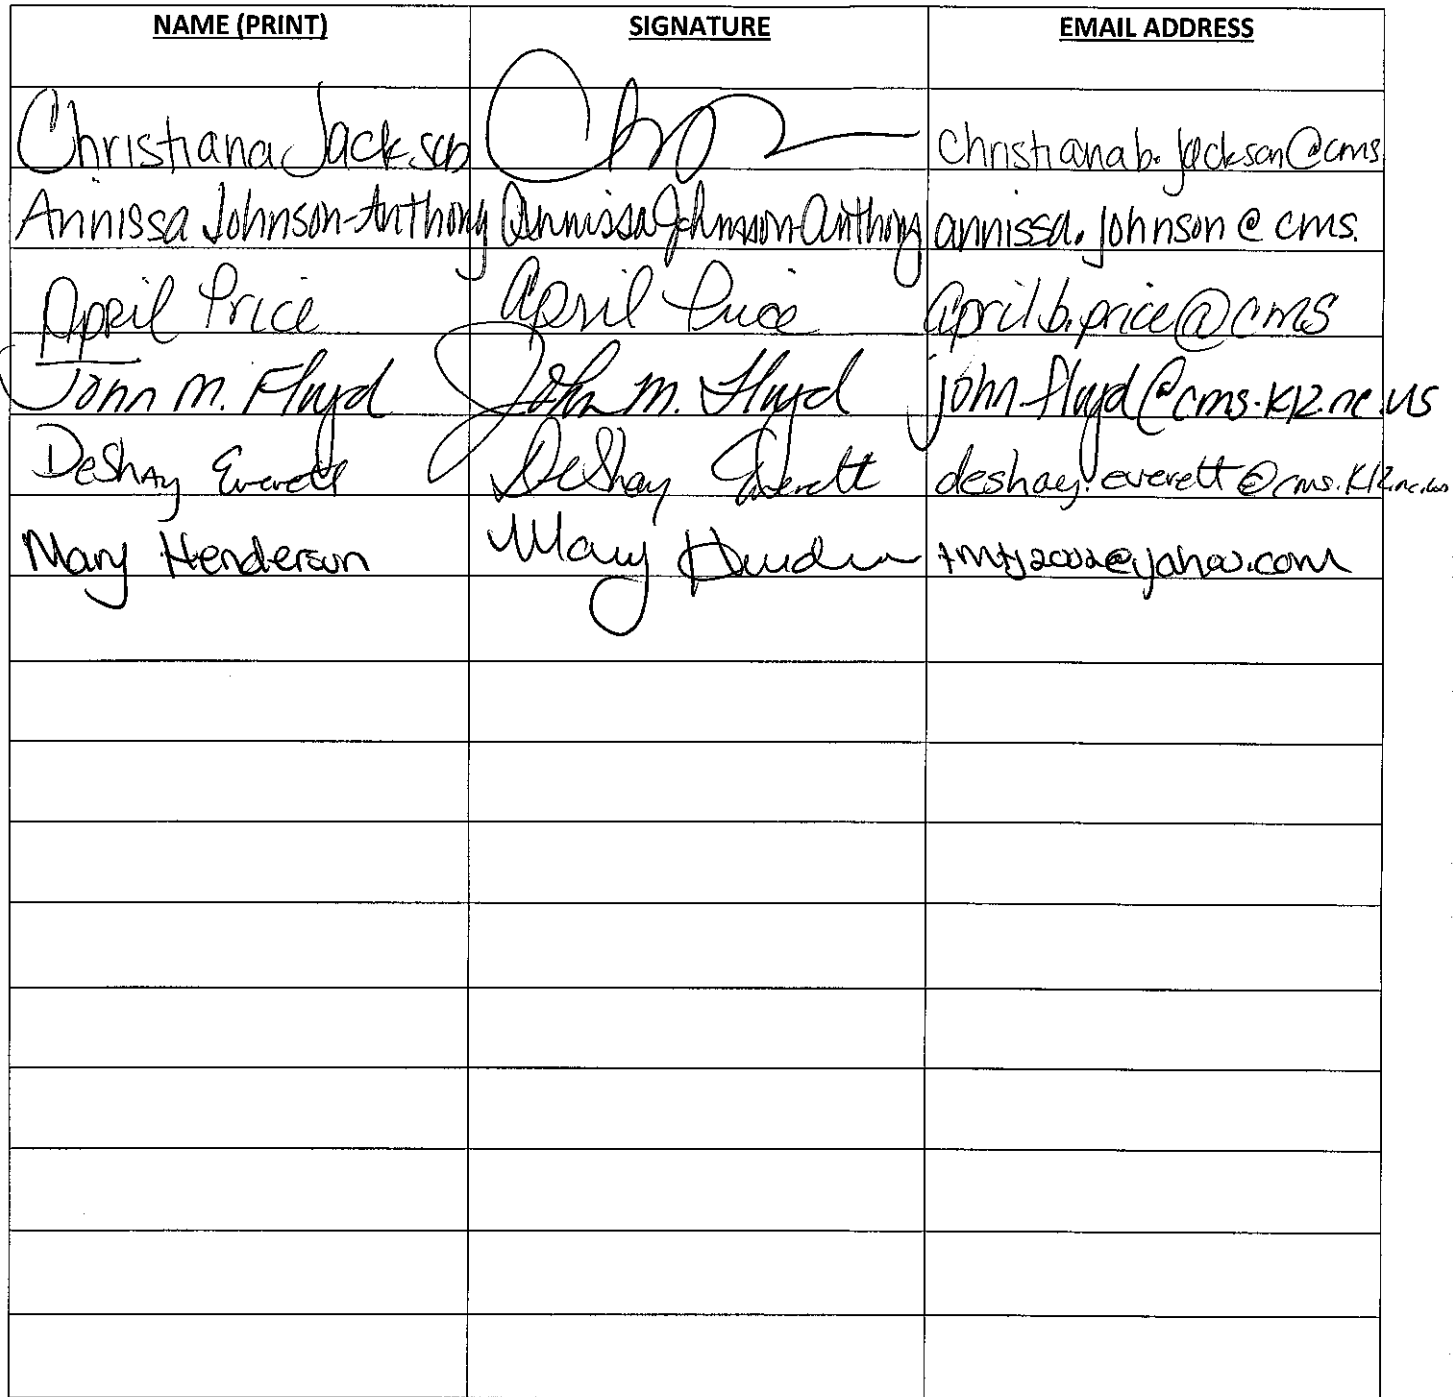 NAME (PRINT) SIGNATURE EMAIL ADDRESS
Christiana Jackson christianab.jackson@cms
Annissa Johnson-Anthony Annissa Johnson-Anthony annissa.johnson@cms.
April Price April Price april.b.price@cms
John M. Floyd John M. Floyd john.floyd@cms.k12.nc.us
DeShay Everett DeShay Everett deshay.everett@cms.k12.nc.us
Mary Henderson Mary